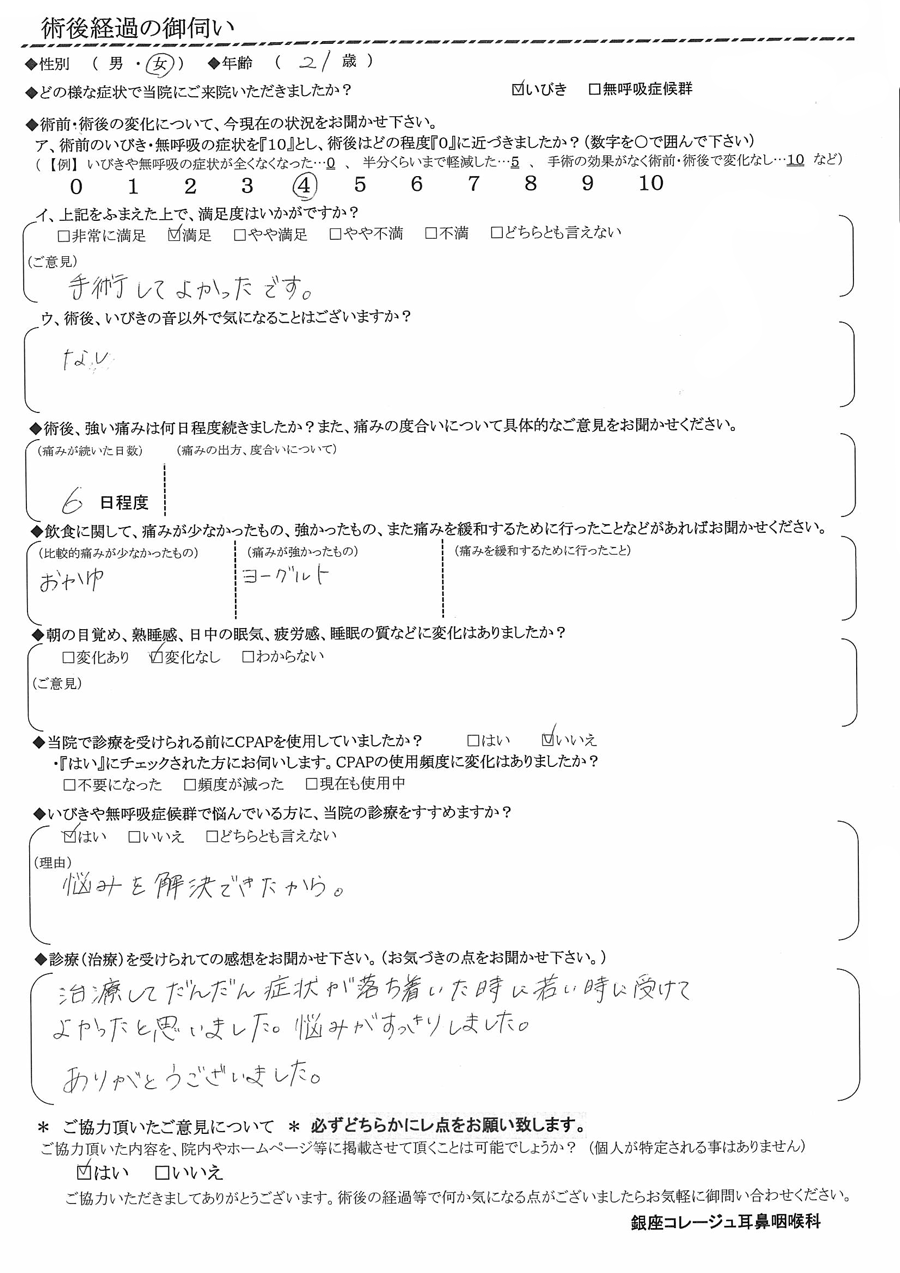 術後経過の御伺い
◆性別 （ 男 ・ 女 ） ◆年齢 （ 21 歳 ）
◆どの様な症状で当院にご来院いただきましたか？ ☑いびき □無呼吸症候群
◆術前・術後の変化について、今現在の状況をお聞かせ下さい。
ア、術前のいびき・無呼吸の症状を『10』とし、術後はどの程度『0』に近づきましたか？（数字を〇で囲んで下さい）
（【例】いびきや無呼吸の症状が全くなくなった…0 、 半分くらいまで軽減した…5 、 手術の効果がなく術前・術後で変化なし…10 など）
0 1 2 3 ④ 5 6 7 8 9 10
イ、上記をふまえた上で、満足度はいかがですか？
□非常に満足 ☑満足 □やや満足 □やや不満 □不満 □どちらとも言えない
（ご意見）
手術してよかったです。
ウ、術後、いびきの音以外で気になることはございますか？
なし
◆術後、強い痛みは何日程度続きましたか？また、痛みの度合いについて具体的なご意見をお聞かせください。
（痛みが続いた日数） （痛みの出方、度合いについて）
6 日程度
◆飲食に関して、痛みが少なかったもの、強かったもの、また痛みを緩和するために行ったことなどがあればお聞かせください。
（比較的痛みが少なかったもの） （痛みが強かったもの） （痛みを緩和するために行ったこと）
おかゆ ヨーグルト
◆朝の目覚め、熟睡感、日中の眠気、疲労感、睡眠の質などに変化はありましたか？
□変化あり ☑変化なし □わからない
（ご意見）
◆当院で診療を受けられる前にCPAPを使用していましたか？ □はい ☑いいえ
・『はい』にチェックされた方にお伺いします。CPAPの使用頻度に変化はありましたか？
□不要になった □頻度が減った □現在も使用中
◆いびきや無呼吸症候群で悩んでいる方に、当院の診療をすすめますか？
☑はい □いいえ □どちらとも言えない
（理由）
悩みを解決できたから。
◆診療（治療）を受けられての感想をお聞かせ下さい。（お気づきの点をお聞かせ下さい。）
治療してだんだん症状が落ち着いた時に若い時に受けて
よかったと思いました。悩みがすっきりしました。
ありがとうございました。
＊ ご協力頂いたご意見について ＊ 必ずどちらかにレ点をお願い致します。
ご協力頂いた内容を、院内やホームページ等に掲載させて頂くことは可能でしょうか？（個人が特定される事はありません）
☑はい □いいえ
ご協力いただきましてありがとうございます。術後の経過等で何か気になる点がございましたらお気軽に御問い合わせください。
銀座コレージュ耳鼻咽喉科